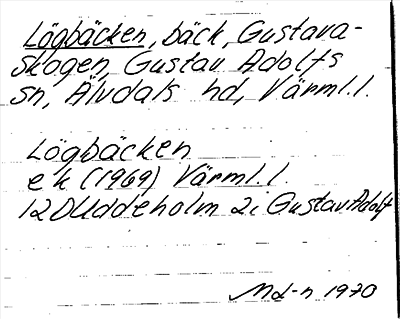 Lögbäcken, bäck, Gustava-
skogen, Gustav Adolfs
sn, Älvdals hd, Värml.l.
Lögbäcken
ek (1969) Värml.l.
12D Uddeholm 2i Gustav Adolf
Md-n 1970